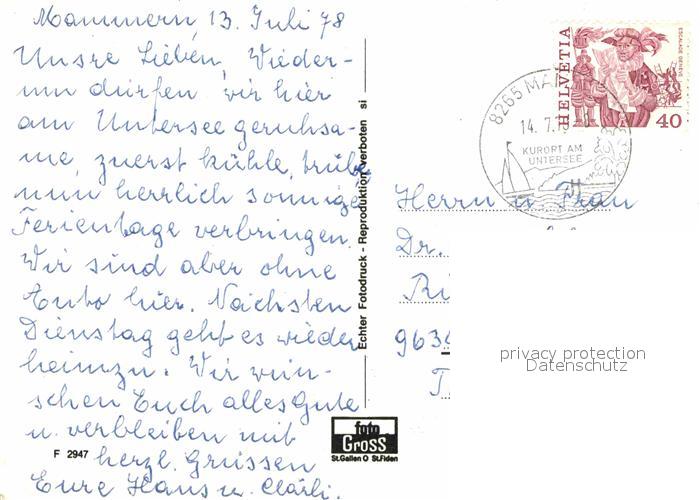 Mammern, 13. Juli 78
Unsre Lieben, Wieder-
um dürfen wir hier
am Untersee geruhsa-
me, zuerst kühle, trübe
nun herrlich sonnige
Ferientage verbringen.
Wir sind aber ohne
Auto hier. Nächsten
Dienstag geht es wieder
heimzu. Wir wün-
schen Euch alles Gute
u. verbleiben mit
herzl. Grüssen
Eure Hans u. Clärli.
F 2947
Echter Fotodruck - Reproduktion verboten si
foto
Gross
St.Gallen O St.Fiden
8265 MA
14. 7.
KURORT AM
UNTERSEE
HELVETIA
ESCALADE GENÈVE
40
Herrn u Frau
Dr.
963
privacy protection
Datenschutz